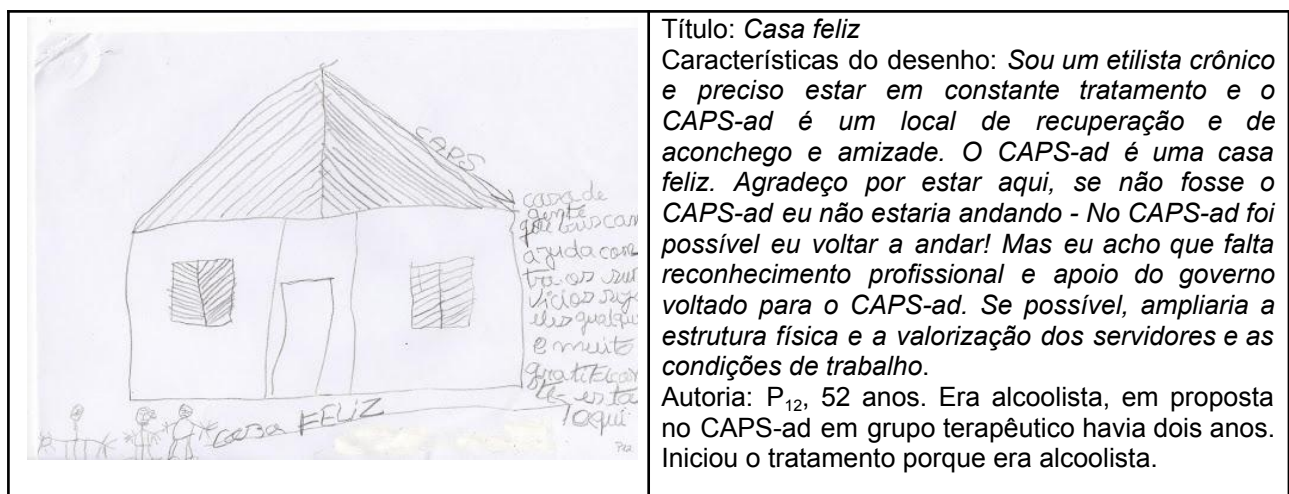 CAPS
casa de
gente
que buscam
ajuda con
tra os
vicios
eles qualqu
e muito
gratifican
te esta
aqui
casa FELIZ
P12
Título: Casa feliz
Características do desenho: Sou um etilista crônico
e preciso estar em constante tratamento e o
CAPS-ad é um local de recuperação e de
aconchego e amizade. O CAPS-ad é uma casa
feliz. Agradeço por estar aqui, se não fosse o
CAPS-ad eu não estaria andando - No CAPS-ad foi
possível eu voltar a andar! Mas eu acho que falta
reconhecimento profissional e apoio do governo
voltado para o CAPS-ad. Se possível, ampliaria a
estrutura física e a valorização dos servidores e as
condições de trabalho.
Autoria: P₁₂, 52 anos. Era alcoolista, em proposta
no CAPS-ad em grupo terapêutico havia dois anos.
Iniciou o tratamento porque era alcoolista.